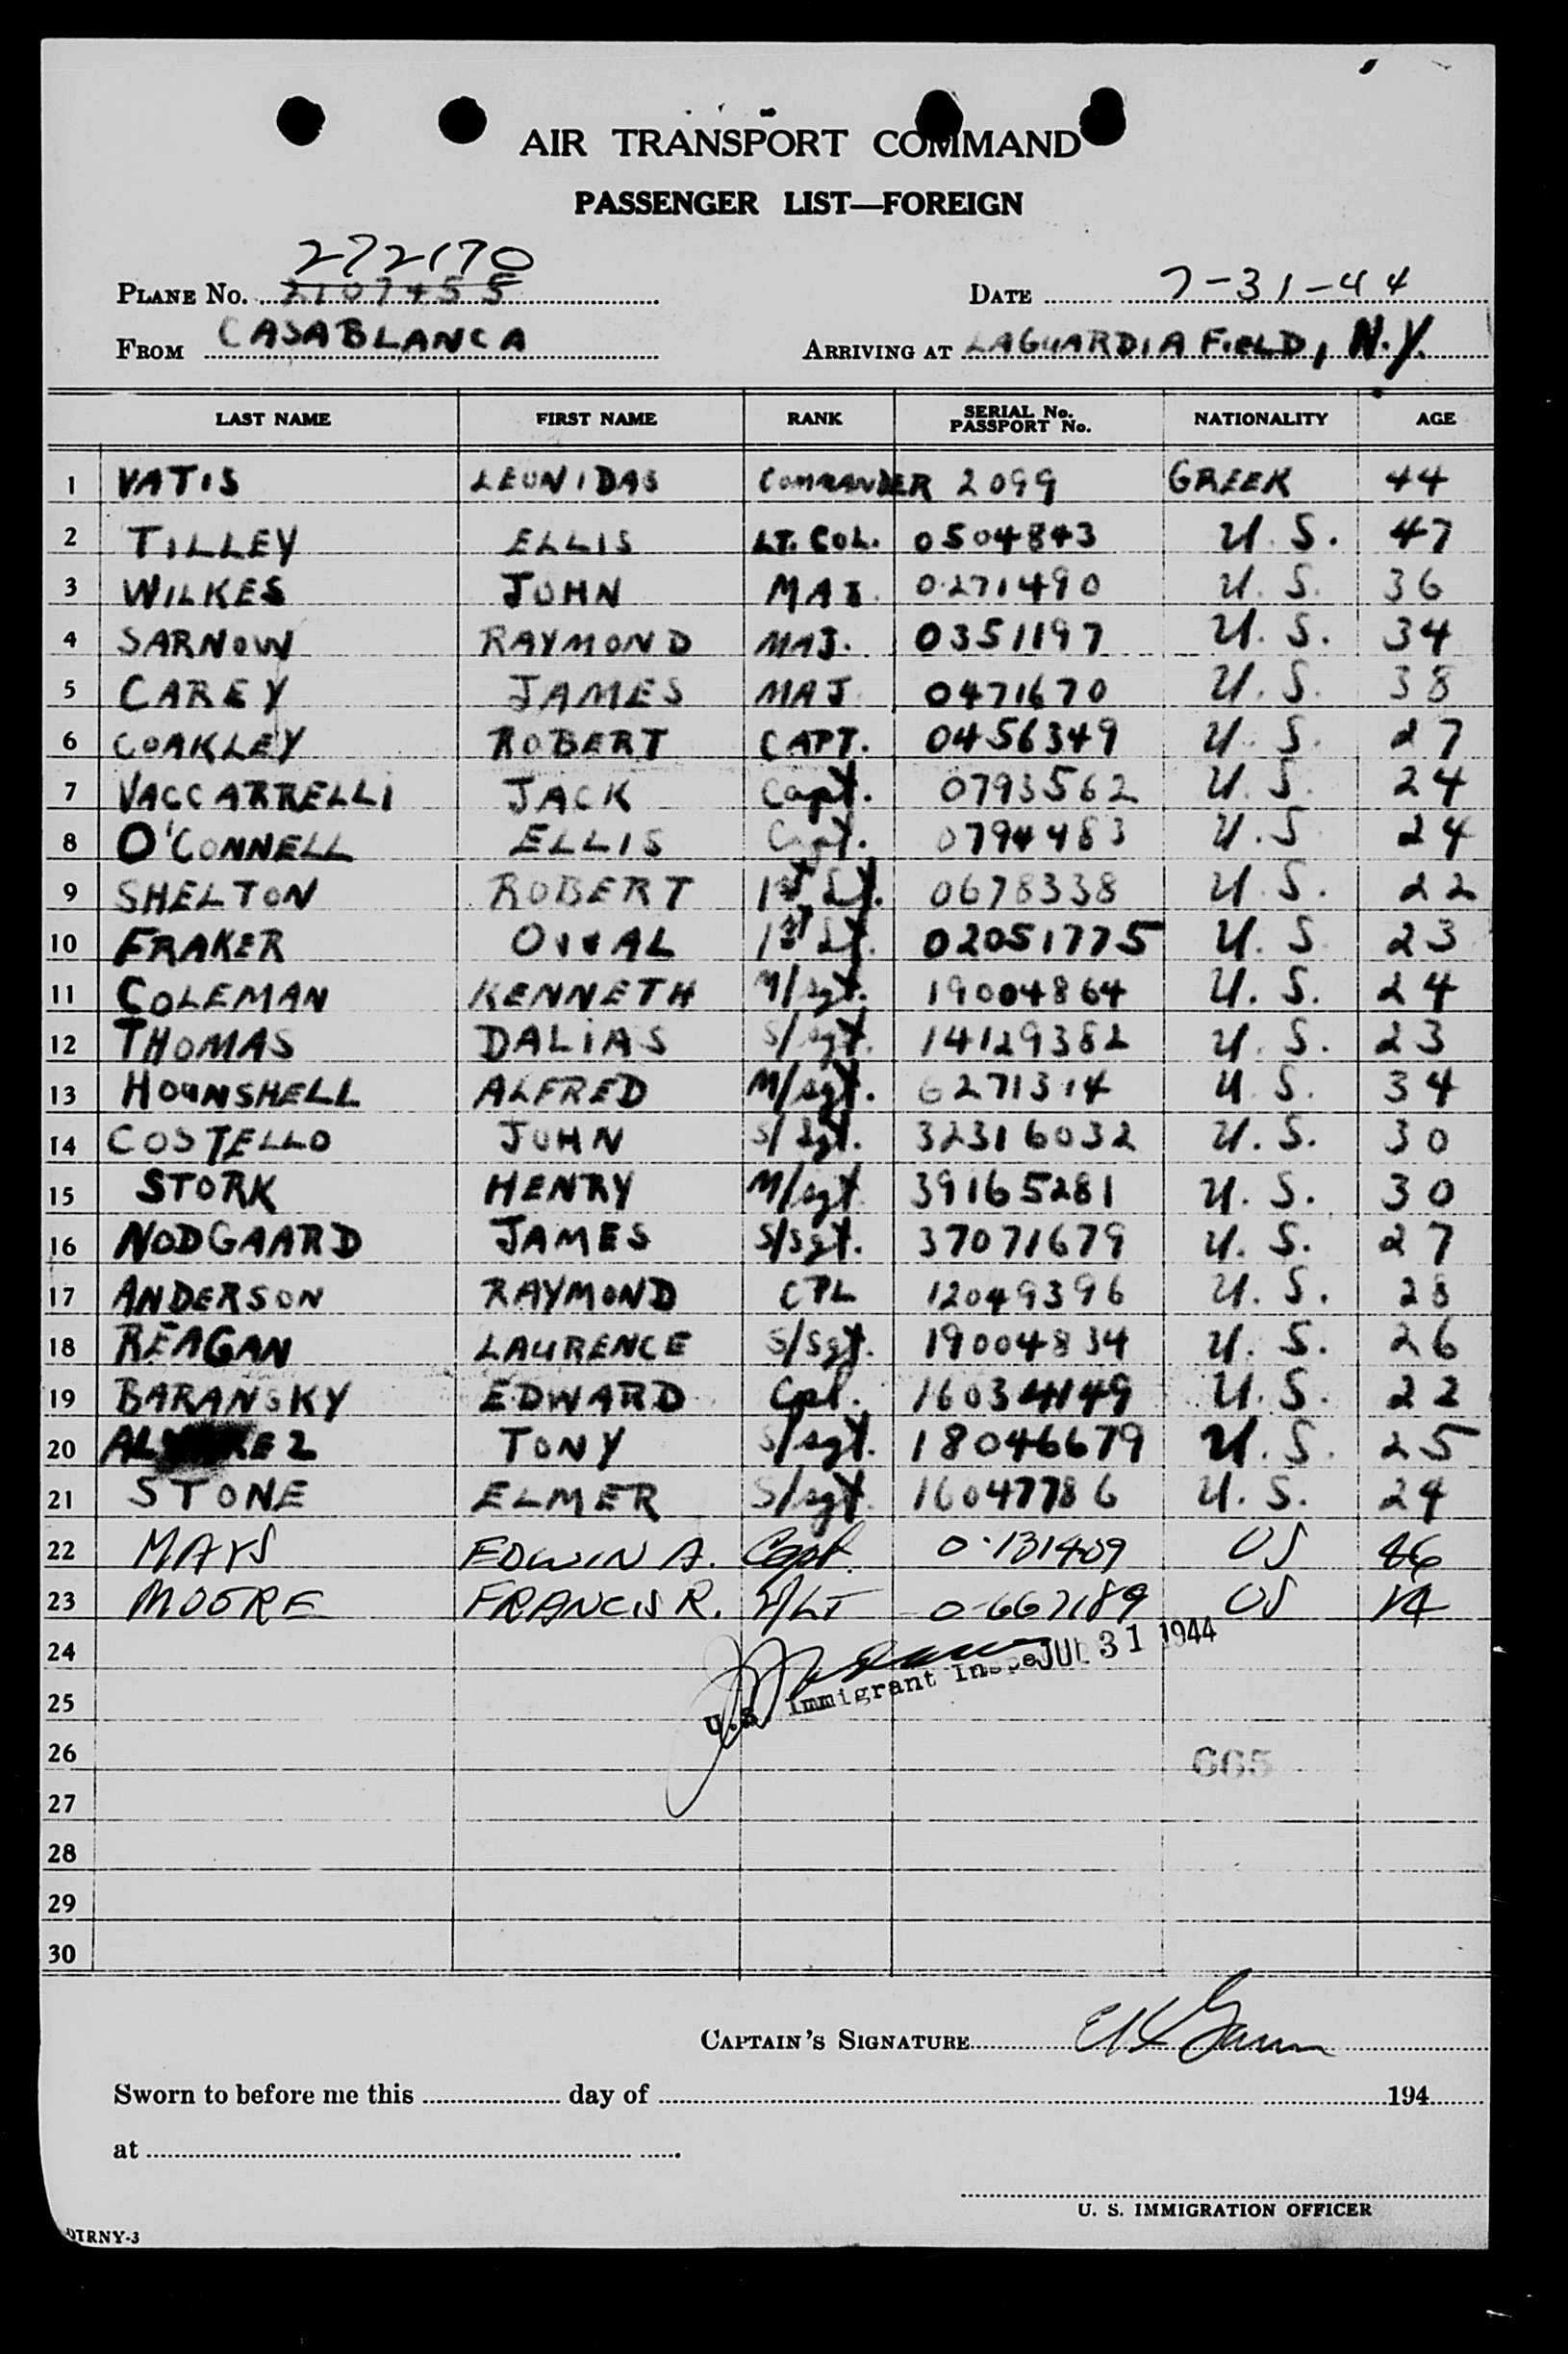 AIR TRANSPORT COMMAND
PASSENGER LIST—FOREIGN
272170
PLANE No. 2107455 DATE 7-31-44
FROM CASABLANCA ARRIVING AT LAGUARDIA FIELD, N.Y.
LAST NAME FIRST NAME RANK SERIAL No. PASSPORT No. NATIONALITY AGE
1 VATIS LEONIDAS COMMANDER 2099 GREEK 44
2 TILLEY ELLIS LT. COL. 0504843 U.S. 47
3 WILKES JOHN MAJ. 0271490 U.S. 36
4 SARNOW RAYMOND MAJ. 0351197 U.S. 34
5 CAREY JAMES MAJ 0471670 U.S. 38
6 COAKLEY ROBERT CAPT. 0456349 U.S. 27
7 VACCARRELLI JACK Capt. 0793562 U.S. 24
8 O'CONNELL ELLIS Capt. 0794483 U.S 24
9 SHELTON ROBERT 1st Lt. 0678338 U.S. 22
10 FRAKER ORVAL 1st Lt. 02051775 U.S 23
11 COLEMAN KENNETH M/sgt. 19004864 U.S. 24
12 THOMAS DALIAS S/sgt. 14129382 U.S. 23
13 HOUNSHELL ALFRED M/sgt. 6271314 U.S. 34
14 COSTELLO JOHN S/Sgt. 32316032 U.S. 30
15 STORK HENRY M/sgt 39165281 U.S. 30
16 NODGAARD JAMES S/Sgt. 37071679 U.S. 27
17 ANDERSON RAYMOND CPL 12049396 U.S. 28
18 REAGAN LAURENCE S/Sgt. 19004834 U.S. 26
19 BARANSKY EDWARD Cpl. 16034149 U.S. 22
20 ALVAREZ TONY S/sgt. 18046679 U.S. 25
21 STONE ELMER S/sgt. 16047786 U.S. 24
22 MAYS EDWIN A. Capt. O-131409 US 46
23 MOORE FRANCIS R. O-667189 US
24
JUL 31 1944
U.S. Immigrant
25
26 665
27
28
29
30
CAPTAIN'S SIGNATURE
Sworn to before me this day of 194
at
U. S. IMMIGRATION OFFICER
DTRNY-3